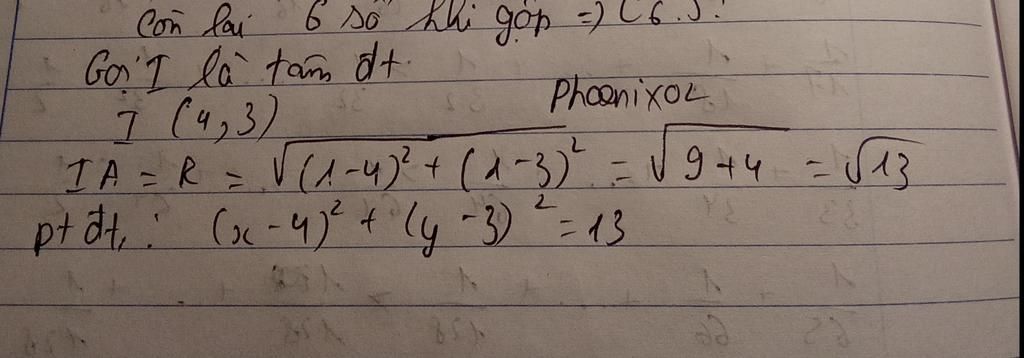 Còn lại 6 số khi gộp => (6.)!
Gọi I là tâm đt.
Phoenixoz
I (4,3)
IA = R = √(1-4)² + (1-3)² = √9+4 = √13
pt đt: (x-4)² + (y-3)² = 13